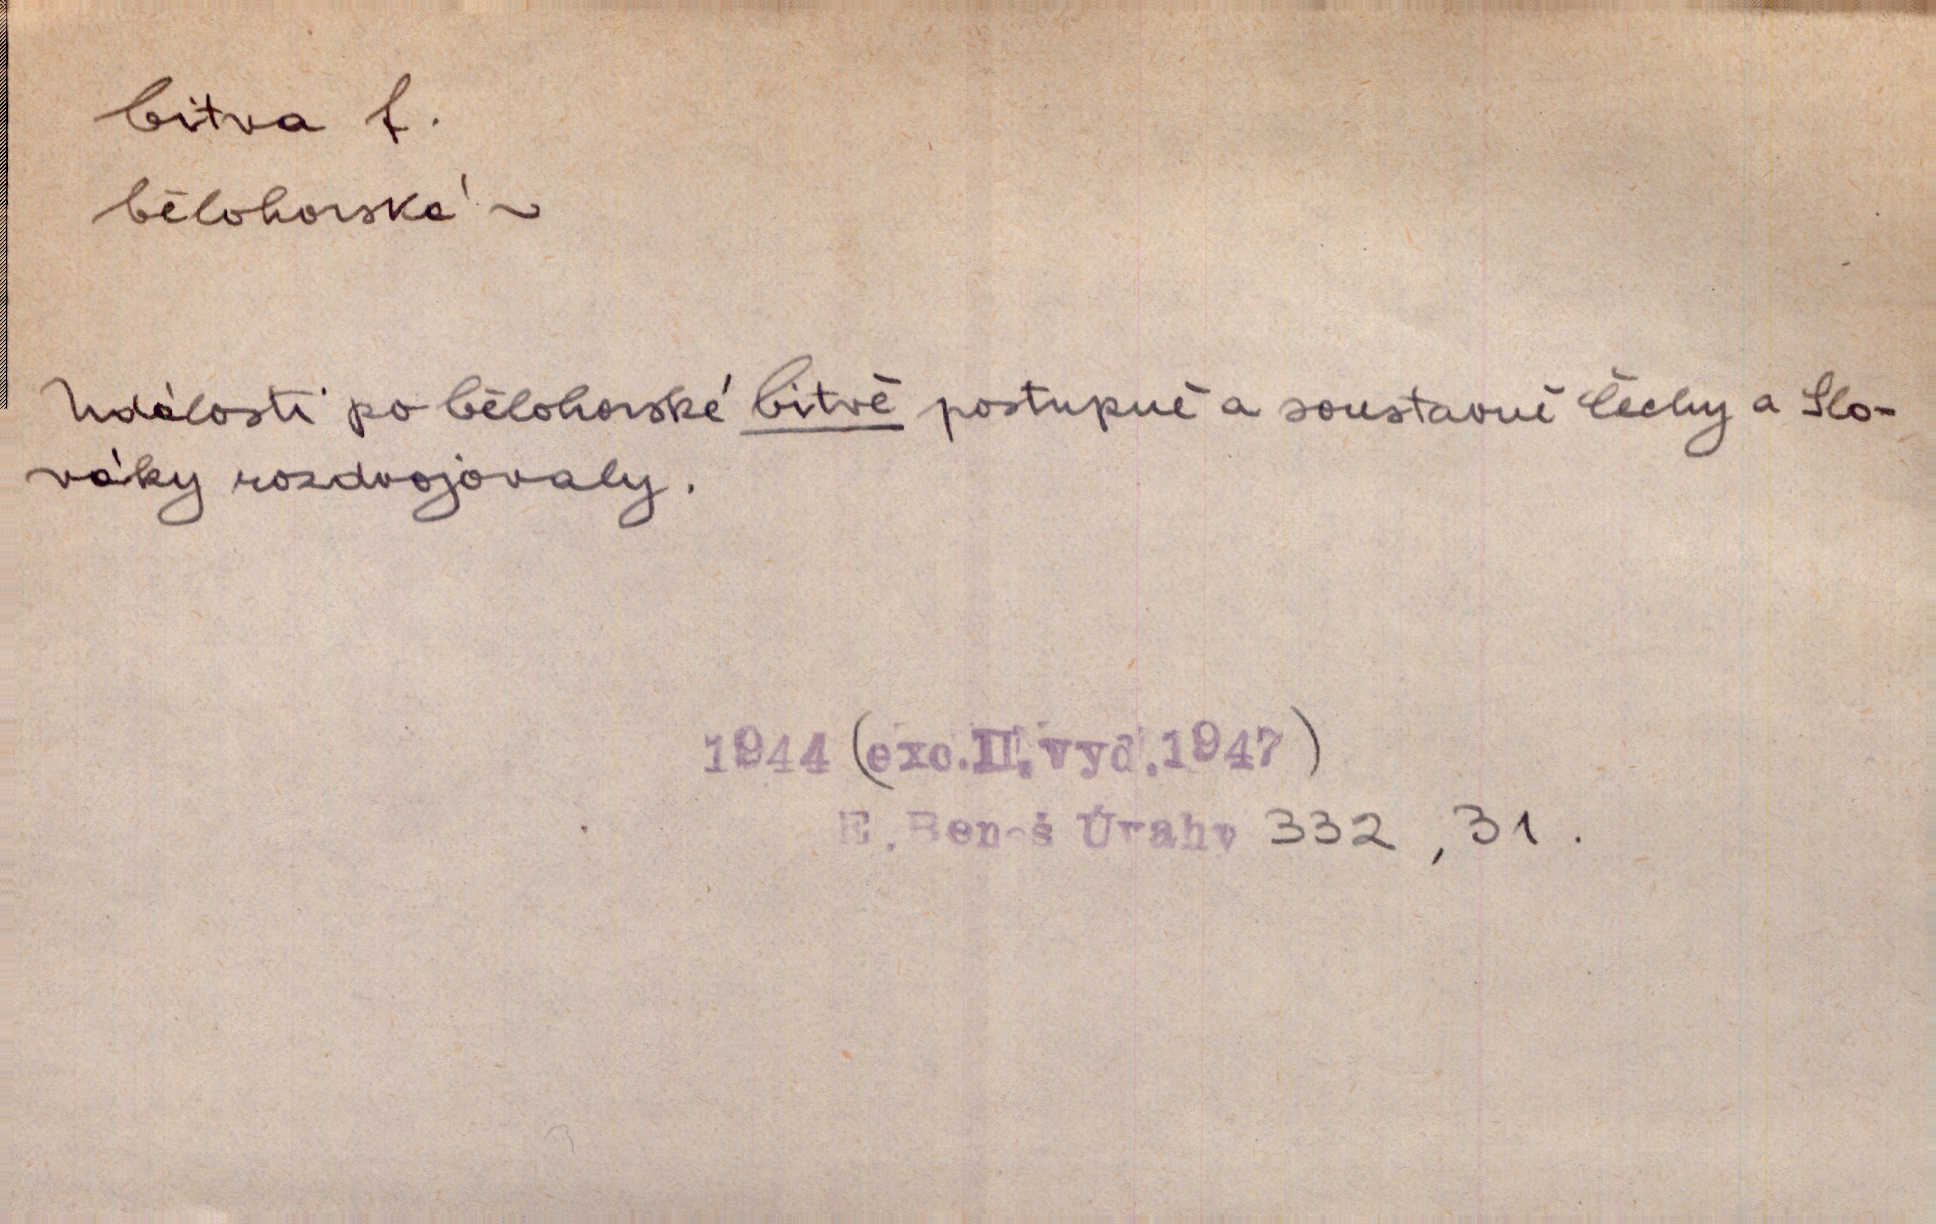 bitva f.
bělohorská ~
Události po bělohorské bitvě postupně a soustavně Čechy a Slo-
váky rozdvojovaly.
1944 (exc.II.vyd.1947)
E.Beneš Úvahy 332, 31.